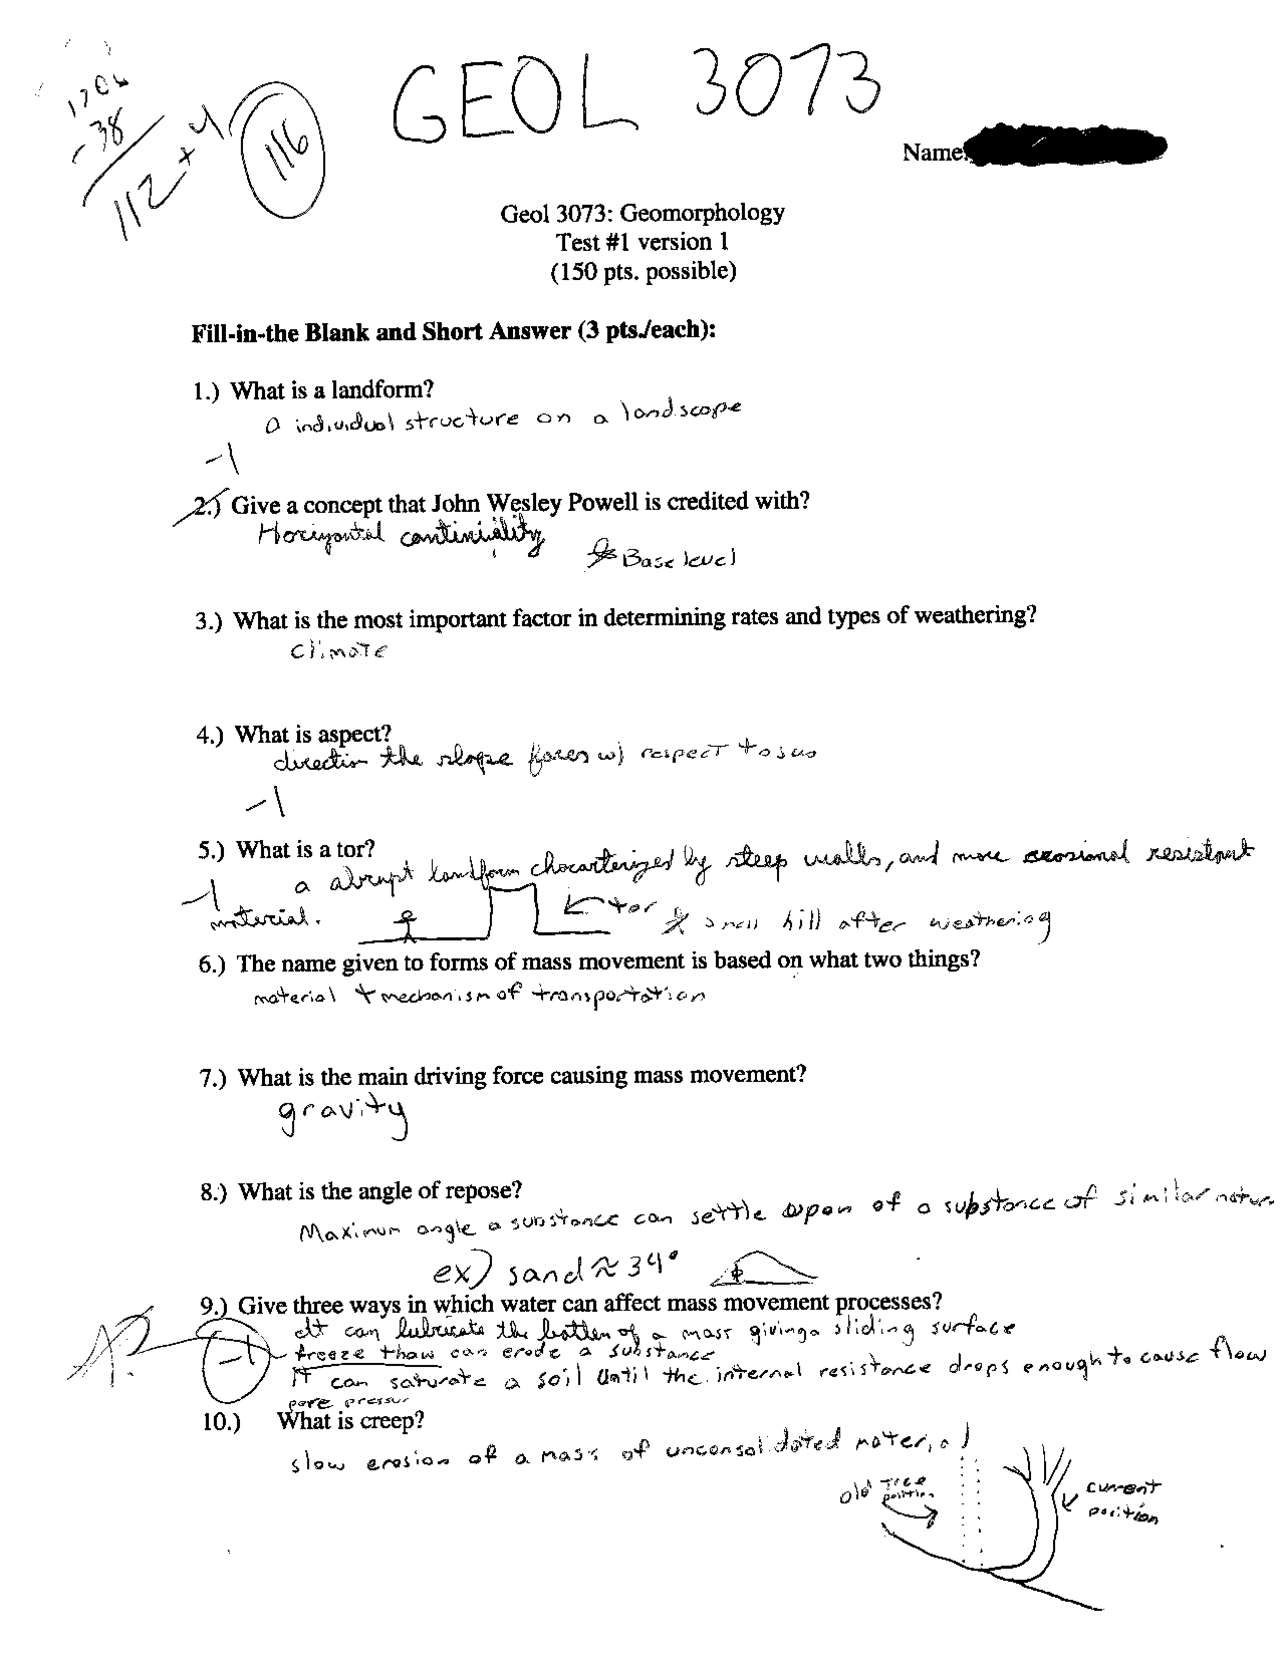 GEOL 3073
-38
112 + 4
116
Name:
Geol 3073: Geomorphology
Test #1 version 1
(150 pts. possible)
Fill-in-the Blank and Short Answer (3 pts./each):
1.) What is a landform?
a individual structure on a landscape
-1
2.) Give a concept that John Wesley Powell is credited with?
Horizontal
Base level
3.) What is the most important factor in determining rates and types of weathering?
climate
4.) What is aspect?
direction the slope faces w/ respect to sun
-1
5.) What is a tor?
a abrupt landform chocarterized by steep walls, and more erosional resistant
-1
material.
tor
small hill after weathering
6.) The name given to forms of mass movement is based on what two things?
material + mechanism of transportation
7.) What is the main driving force causing mass movement?
gravity
8.) What is the angle of repose?
Maximum angle a substance can settle upon of a substance of similar natur
ex) sand ≈ 34°
9.) Give three ways in which water can affect mass movement processes?
It can lubricate the bottem of a mass giving a sliding surface
-1
freeze thaw can erode a substance
IT can saturate a soil until the internal resistance drops enough to cause flow
pore pressur
10.) What is creep?
slow erosion of a mass of unconsolidated material
old Tree position
current position